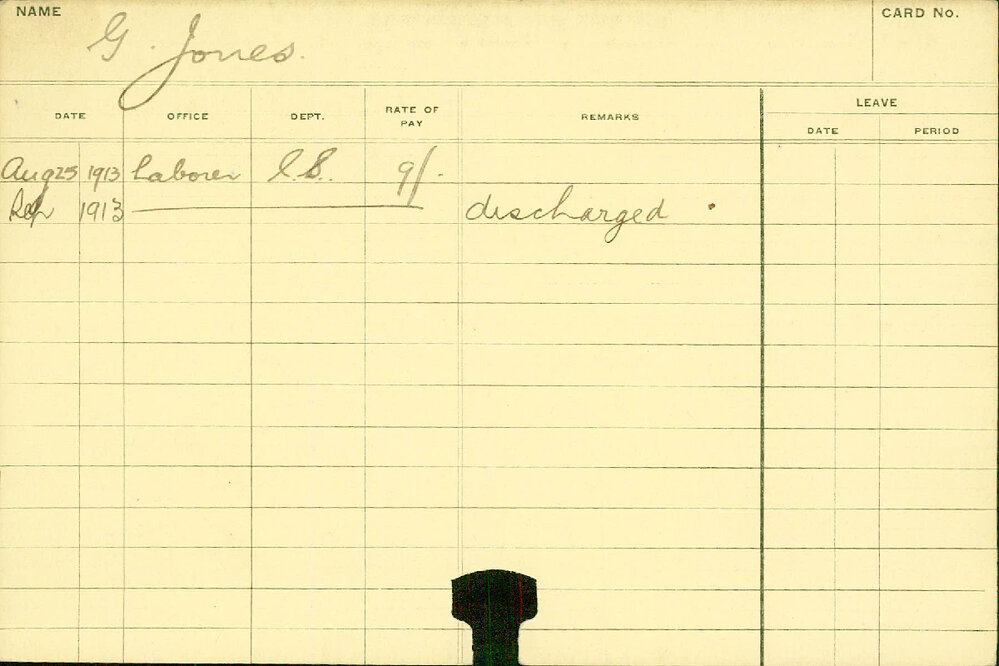 NAME G. Jones. CARD No.
DATE OFFICE DEPT. RATE OF PAY REMARKS LEAVE
DATE PERIOD
Aug 25 1913 Laborer 9/-
Sep 1913 discharged